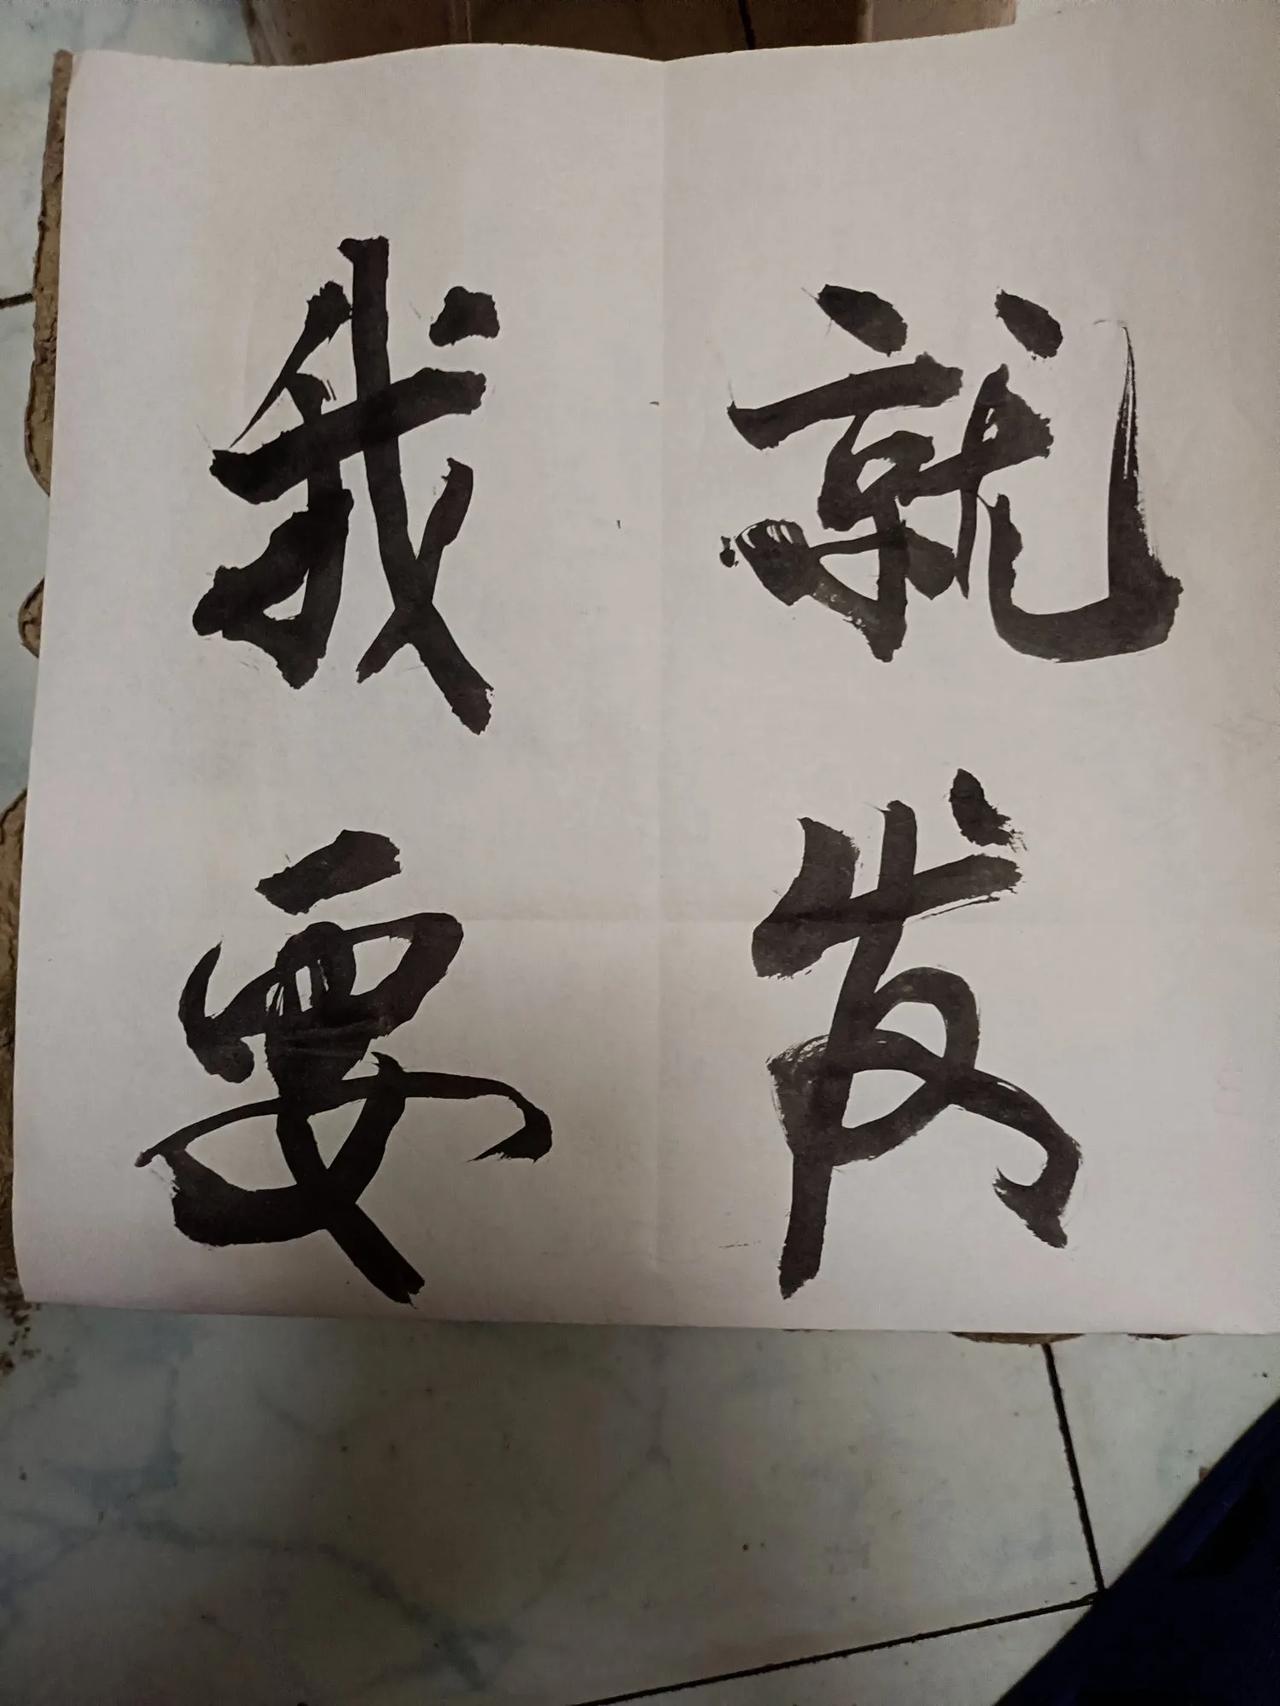 就发
我要